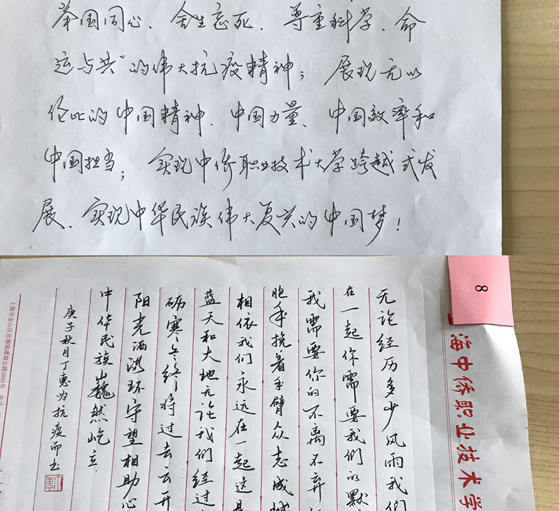 举国同心、舍生忘死、尊重科学、命
运与共"的伟大抗疫精神；展现无以
伦比的中国精神、中国力量、中国效率和
中国担当；实现中侨职业技术大学跨越式发
展、实现中华民族伟大复兴的中国梦！
8
海中侨职业技术学
无论经历多少风雨我们
在一起你需要我们的默
我需要你的不离不弃
胞手挽着手臂众志成城
相依我们永远在一起这是
蓝天和大地无论我们经过
砺寒冬终将过去云开
阳光洒满环宇守望相助心
中华民族巍然屹立
庚子秋月丁惠为抗疫而书